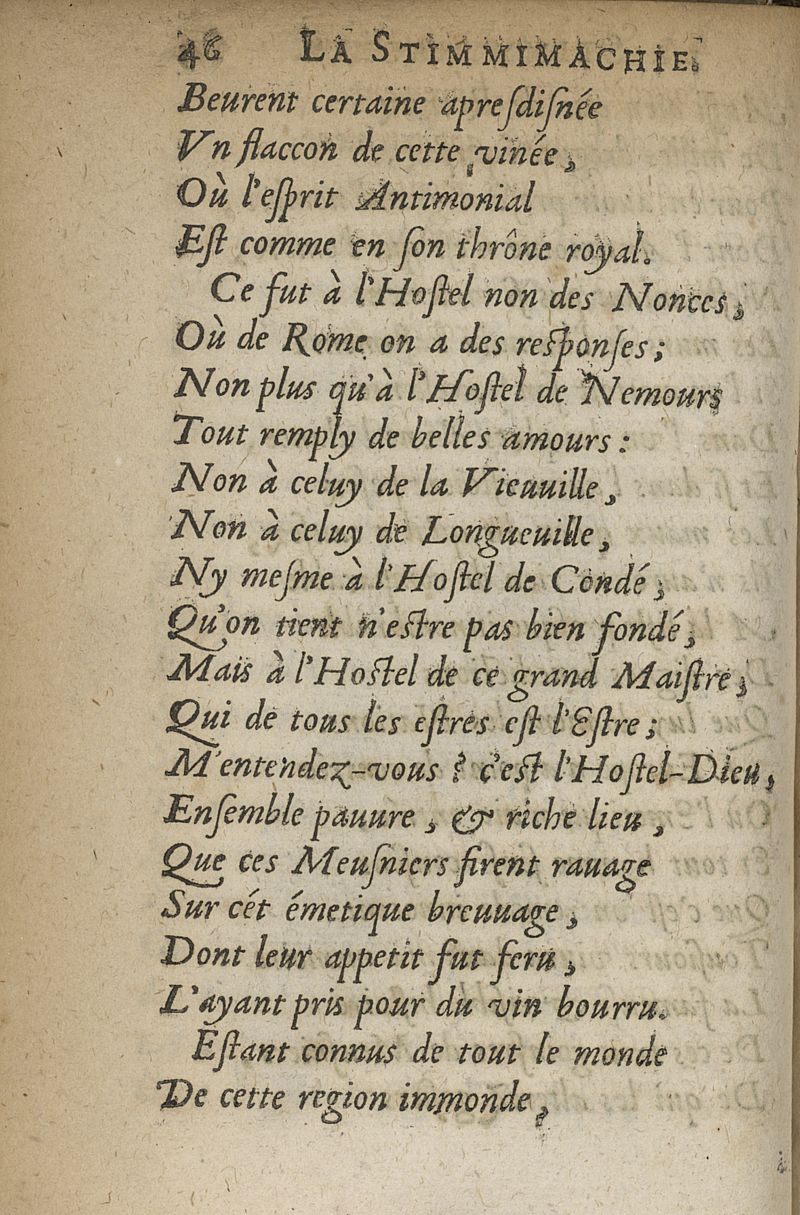 46 LA STIMMIMACHIE.
Beurent certaine apreſdiſnée
Vn flaccon de cette vinée,
Où l'eſprit Antimonial
Eſt comme en ſon thrône royal.
Ce fut à l'Hoſtel non des Nonces,
Où de Rome on a des reſponſes;
Non plus qu'à l'Hoſtel de Nemours
Tout remply de belles amours:
Non à celuy de la Vieuuille,
Non à celuy de Longueuille,
Ny meſme à l'Hoſtel de Condé,
Qu'on tient n'eſtre pas bien fondé,
Mais à l'Hoſtel de ce grand Maiſtre,
Qui de tous les eſtres eſt l'Eſtre;
M'entendez-vous? c'eſt l'Hoſtel-Dieu,
Enſemble pauure, & riche lieu,
Que ces Meuſniers firent rauage
Sur cét émetique breuuage,
Dont leur appetit fut feru,
L'ayant pris pour du vin bourru.
Eſtant connus de tout le monde
De cette region immonde,